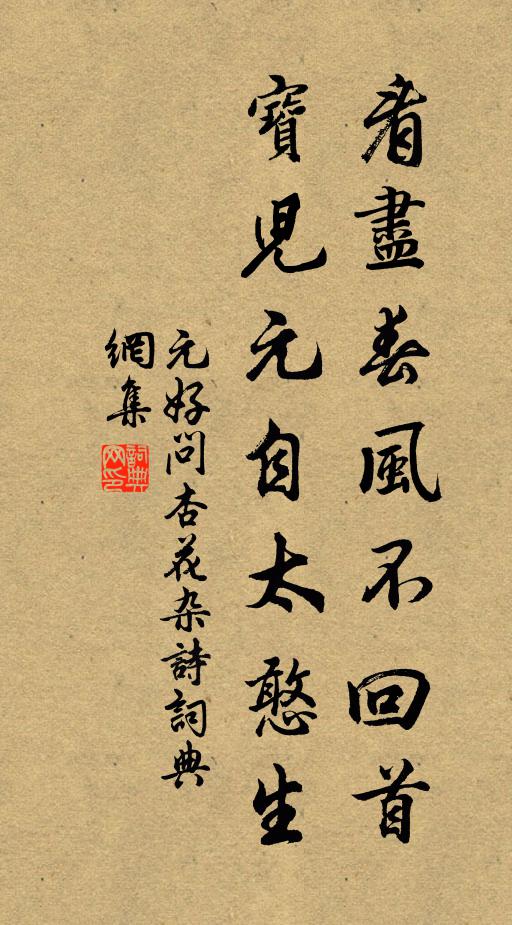 看盡春風不回首
寶兒元自太憨生
元好問杏花杂詩詞典
網集
詞典
网印